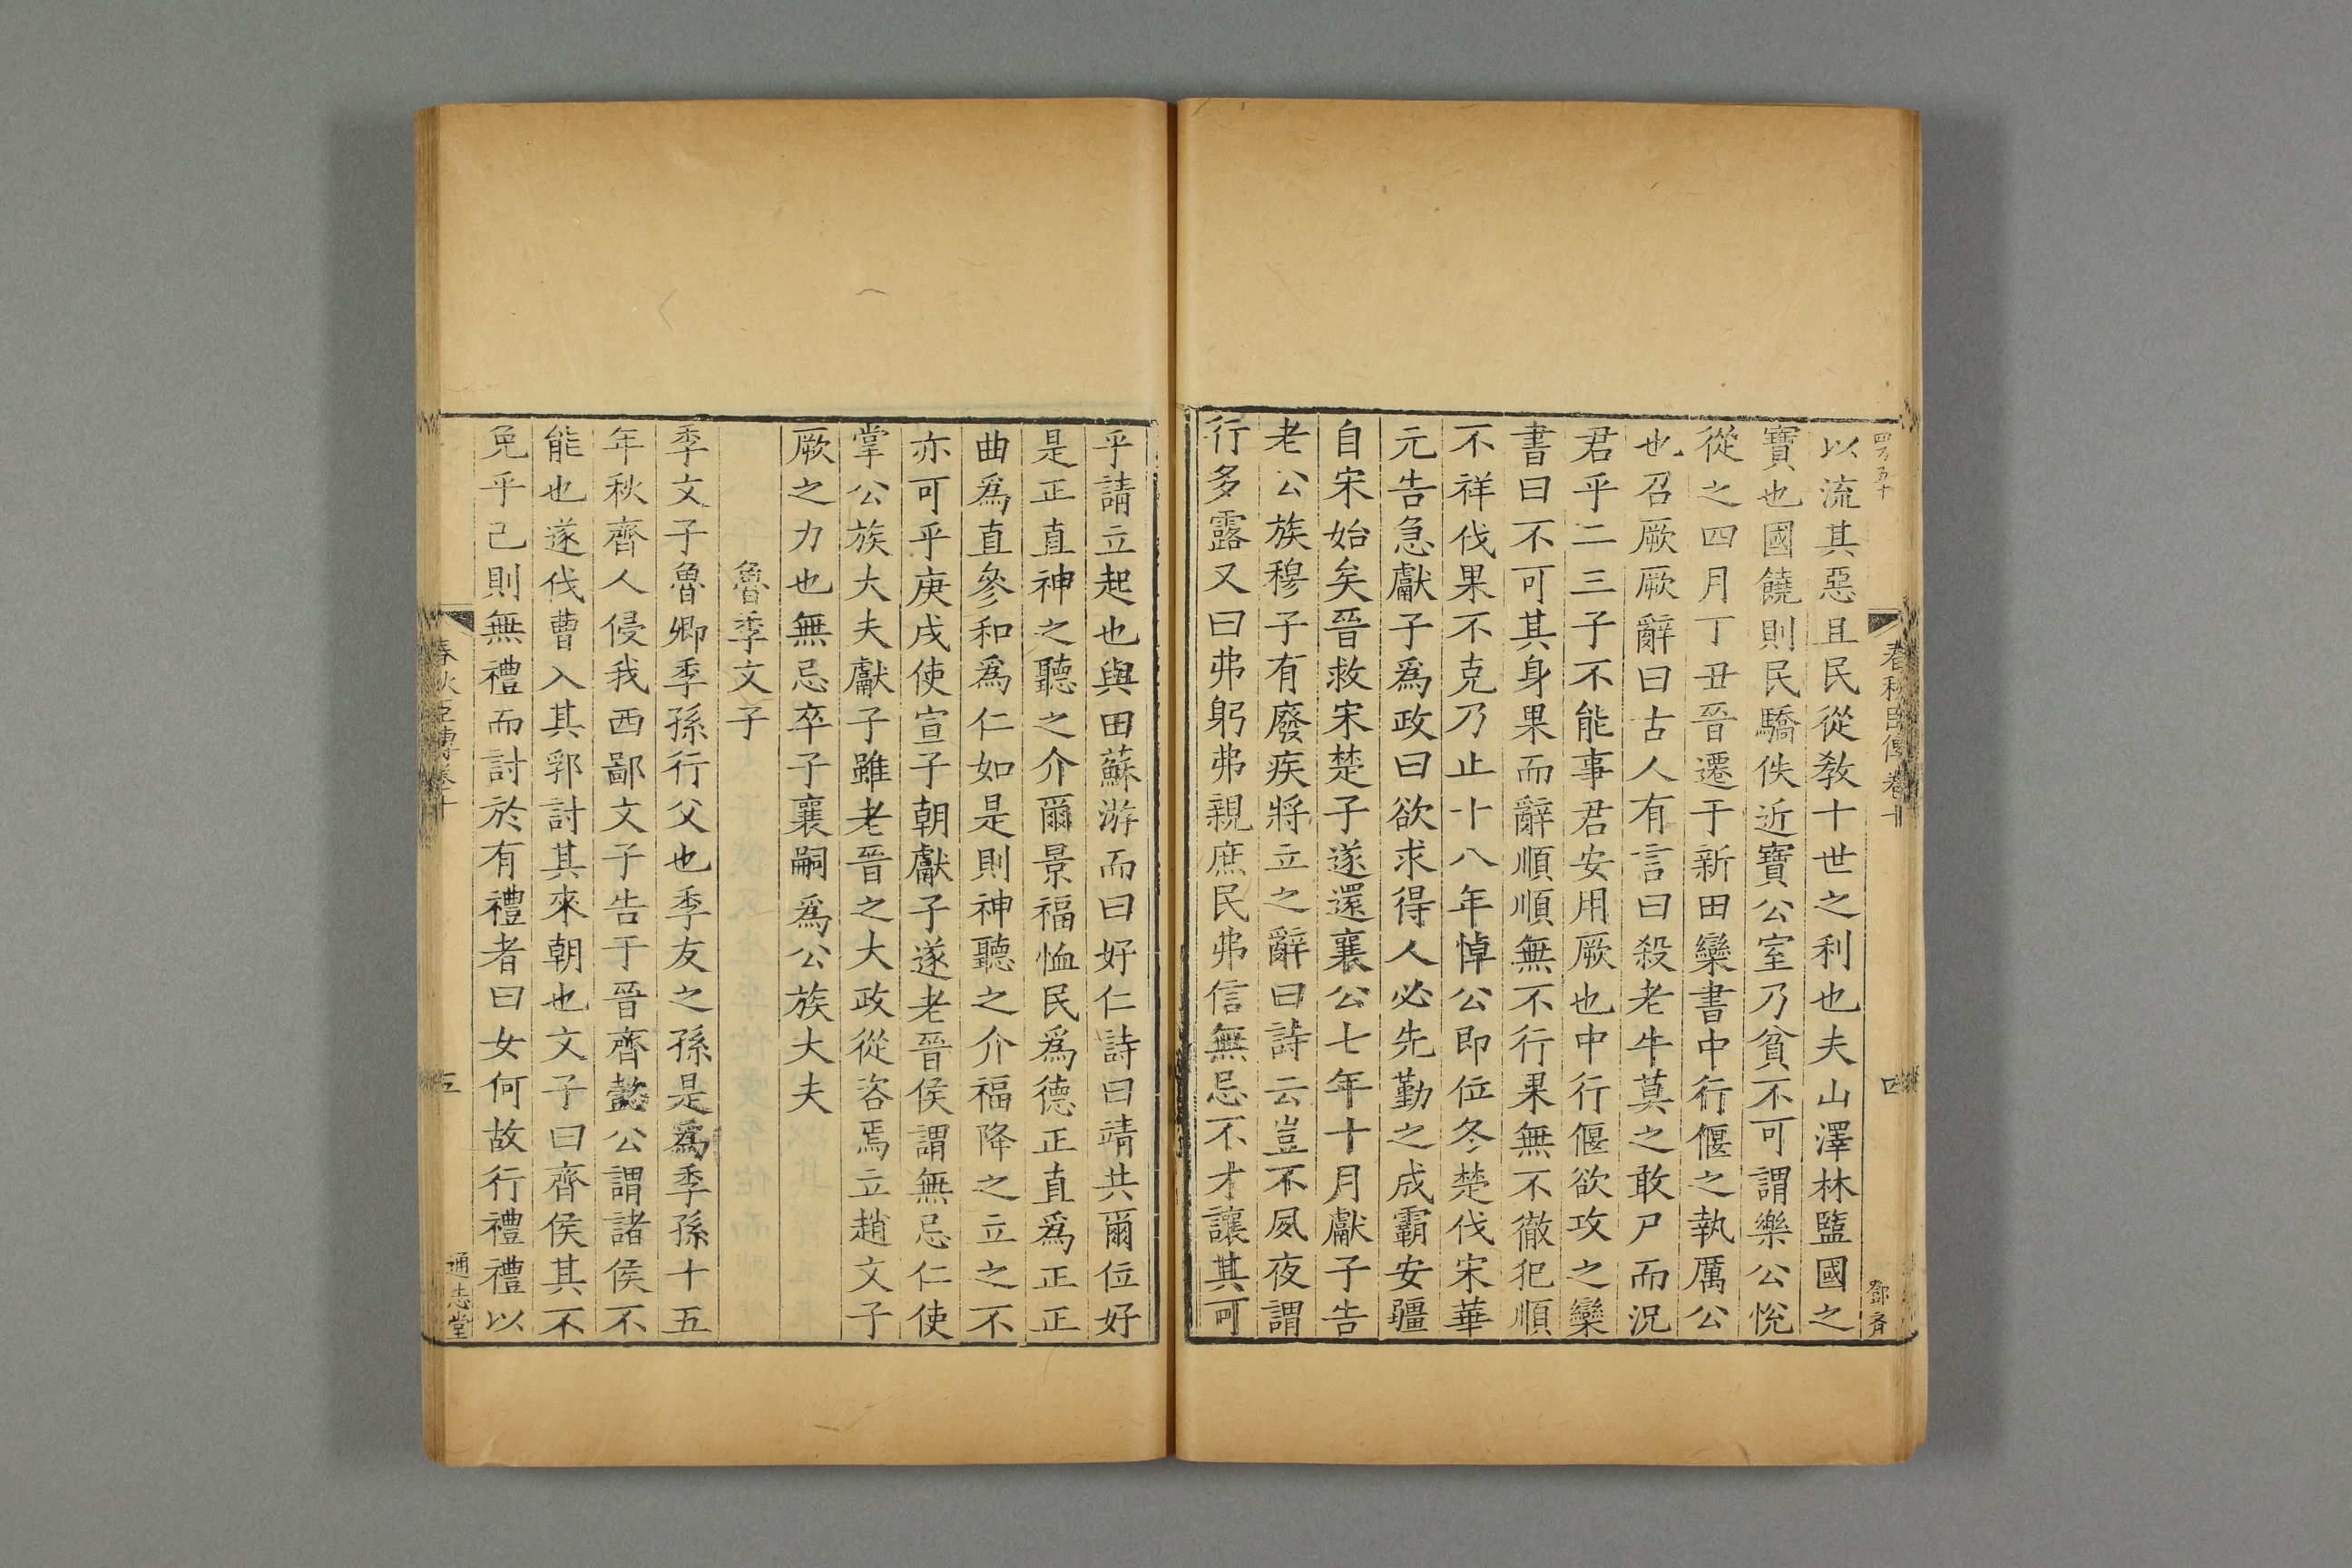 四百五十
春秋臣傳卷十
四
鄧斉
以流其惡且民從敎十世之利也夫山澤林盬國之
寶也國饒則民驕佚近寶公室乃貧不可謂樂公悅
從之四月丁丑晉遷于新田欒書中行偃之執厲公
也召厥厥辭曰古人有言曰殺老牛莫之敢尸而況
君乎二三子不能事君安用厥也中行偃欲攻之欒
書曰不可其身果而辭順順無不行果無不徹犯順
不祥伐果不克乃止十八年悼公即位冬楚伐宋華
元告急獻子爲政曰欲求得人必先勤之成霸安疆
自宋始矣晉救宋楚子遂還襄公七年十月獻子告
老公族穆子有廢疾將立之辭曰詩云豈不夙夜謂
行多露又曰弗躬弗親庶民弗信無忌不才讓其可
乎請立起也與田蘇游而曰好仁詩曰靖共爾位好
是正直神之聽之介爾景福恤民爲德正直爲正正
曲爲直參和爲仁如是則神聽之介福降之立之不
亦可乎庚戌使宣子朝獻子遂老晉侯謂無忌仁使
掌公族大夫獻子雖老晉之大政從咨焉立趙文子
厥之力也無忌卒子襄嗣爲公族大夫
魯季文子
季文子魯卿季孫行父也季友之孫是爲季孫十五
年秋齊人侵我西鄙文子告于晉齊懿公謂諸侯不
能也遂伐曹入其郛討其來朝也文子曰齊侯其不
免乎己則無禮而討於有禮者曰女何故行禮禮以
春秋臣傳卷十
五
通志堂